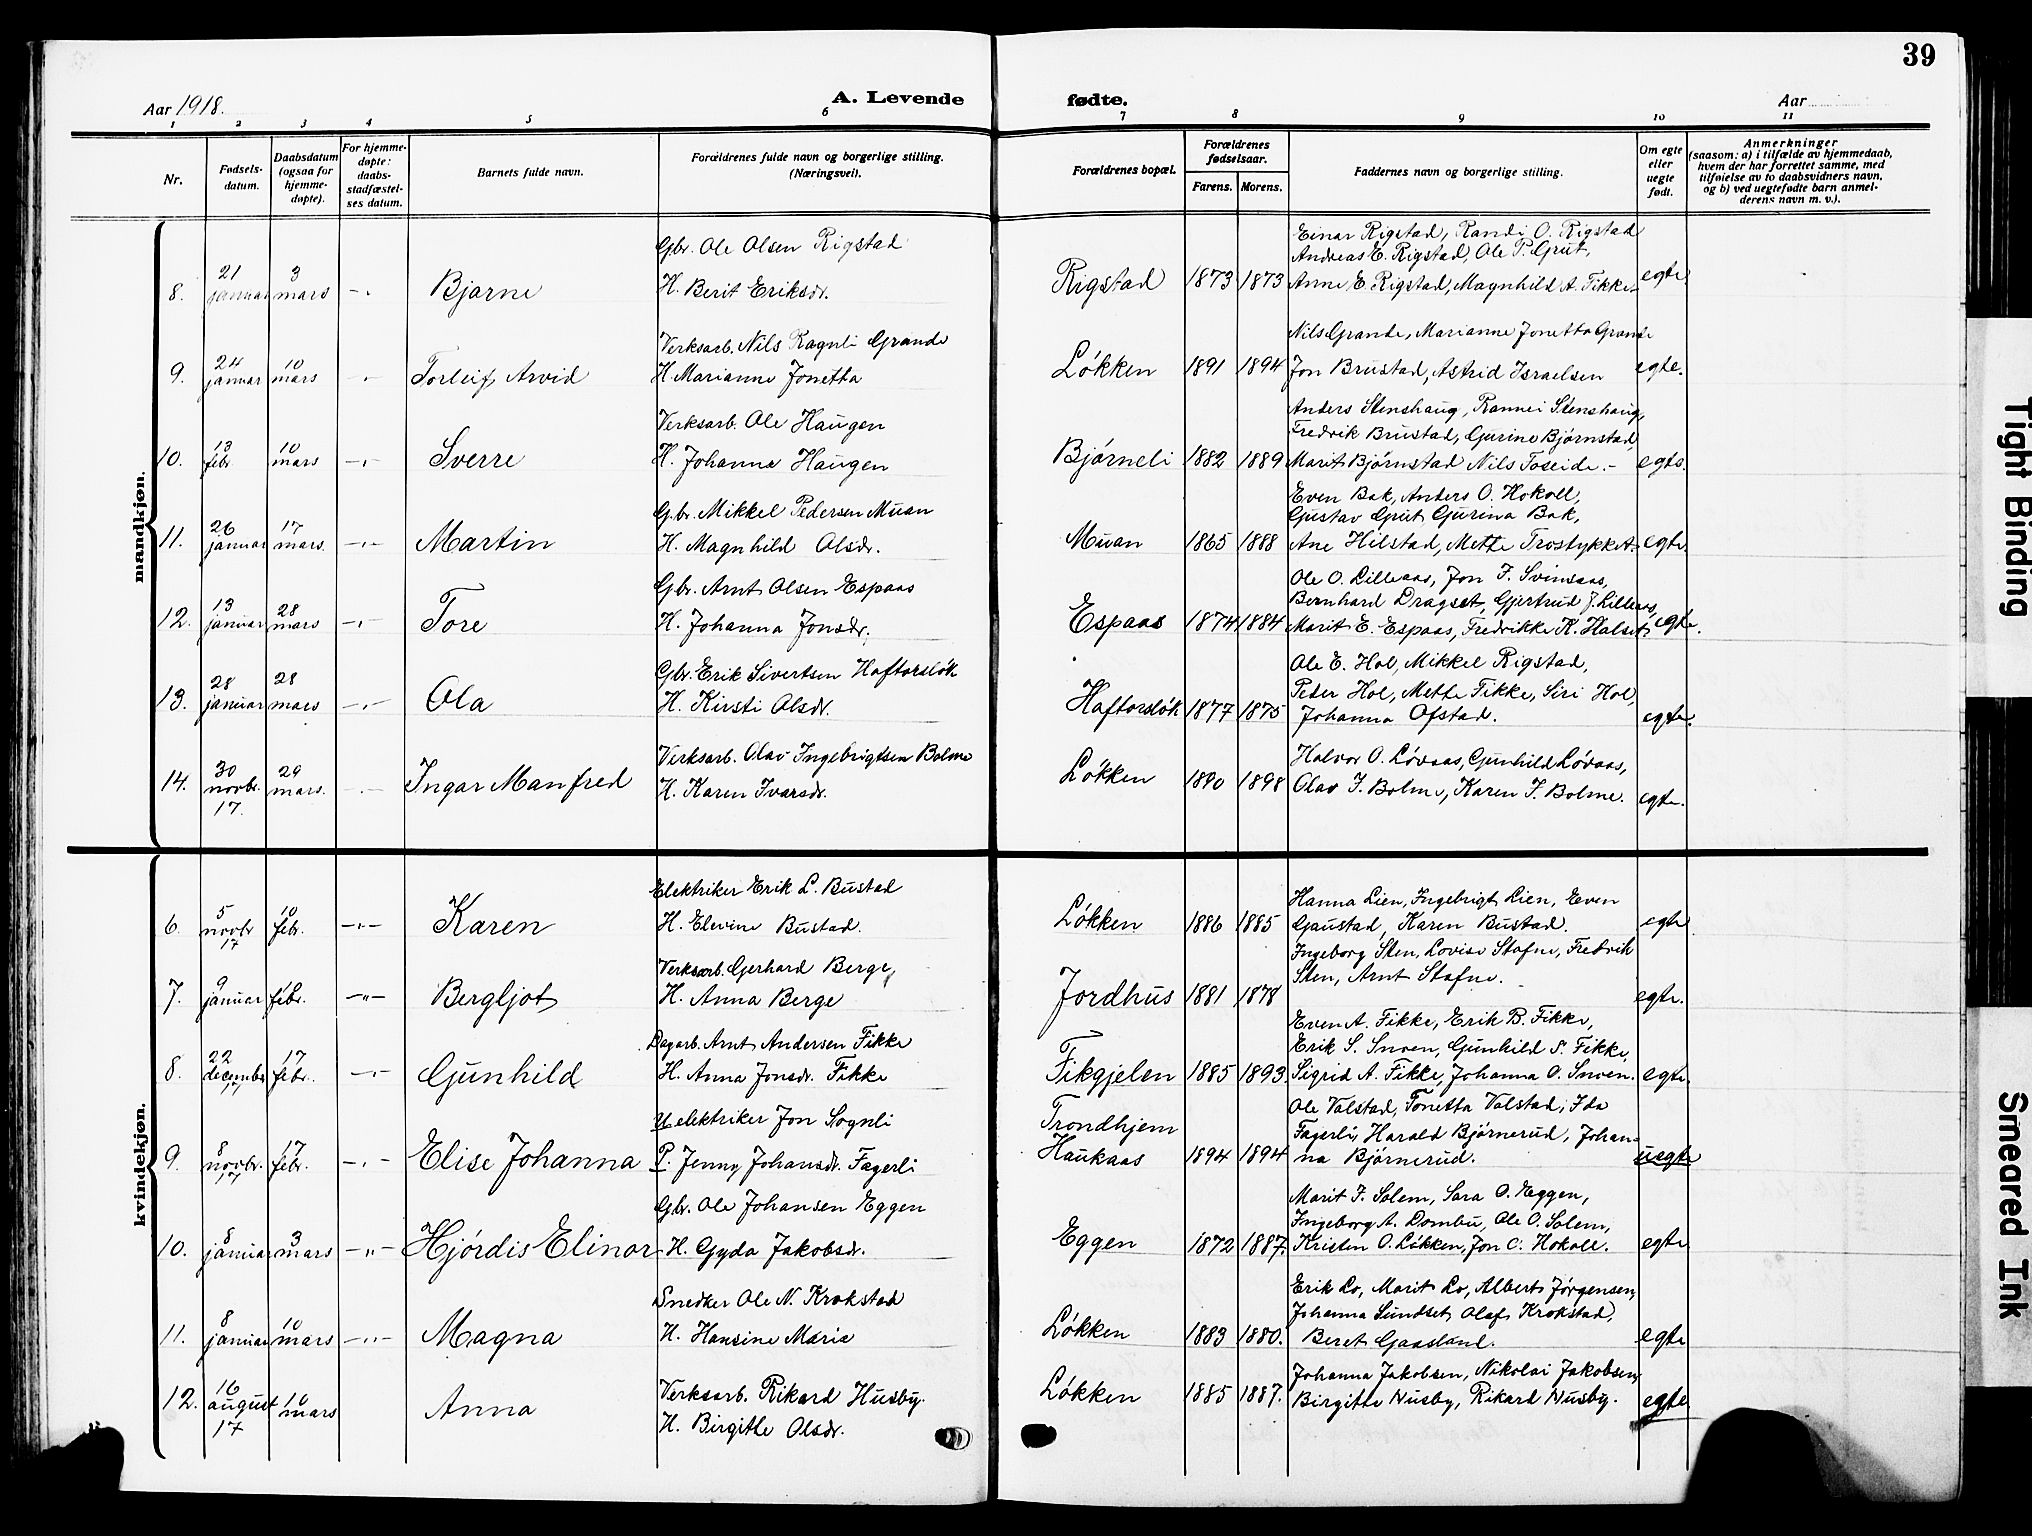 39
Aar 1918.
A. Levende fødte.
Aar
1 2 3 4 5 6 7 8 9 10 11
Nr.
Fødsels-
datum.
Daabsdatum
(ogsaa for
hjemme-
døpte).
For hjemme-
døpte:
daabs-
stadfæstel-
ses datum.
Barnets fulde navn.
Forældrenes fulde navn og borgerlige stilling.
(Næringsvei).
Forældrenes bopæl.
Forældrenes
fødselsaar.
Farens. Morens.
Faddernes navn og borgerlige stilling.
Om egte
eller
uegte
født.
Anmerkninger
(saasom: a) i tilfælde av hjemmedaab,
hvem der har forrettet samme, med
tilføielse av to daabsvidners navn,
og b) ved uegtefødte barn anmel-
derens navn m. v.).
mandkjøn.
8. 21 januar 3 mars -.- Bjarne
Gbr. Ole Olsen Rigstad
H. Berit Eriksdr.
Rigstad 1873 1873
Einar Rigstad, Randi O. Rigstad
Andreas E. Rigstad, Ole P. Grut,
Anne E. Rigstad, Magnhild A. Fikke
egte.
9. 24 januar 10 mars -.- Torleif Arvid
Verksarb. Nils Ragnli Grande
H. Marianne Jonetta
Løkken 1891 1894
Nils Grande, Marianne Jonetta Grande
Jon Brustad, Astrid Israelsen
egte.
10. 13 febr 10 mars -.- Sverre
Verksarb. Ole Haugen
H. Johanna Haugen
Bjørneli 1882 1889
Anders Stenshaug, Rannei Stenshaug,
Fredrik Brustad, Gurine Bjørnstad,
Marit Bjørnstad Nils Toseide.-
egte.
11. 26 januar 17 mars. -.- Martin
Gbr. Mikkel Pedersen Muan
H. Magnhild Olsdr.
Muan 1865 1888
Even Bak, Anders O. Hokoll,
Gustav Grut Gurina Bak,
Ane Hilstad, Mette Trostykket.
egte.
12. 13 januar 28 mars -.- Tore
Gbr. Arnt Olsen Espaas
H. Johanna Jonsdr.
Espaas 1874 1884
Ole O. Lilleaas, Jon J. Svinsaas,
Bernhard Dragset, Gjertrud J. Lilleaas,
Marit E. Espaas, Fredrikke K. Halset
egte.
13. 28 januar 28 mars -.- Ola
Gbr. Erik Sivertsen Haftorsløk
H. Kirsti Olsdr.
Haftorsløk 1877 1875
Ole E. Hol, Mikkel Rigstad,
Peder Hol, Mette Fikke, Siri Hol,
Johanna Ofstad.
egte.
14. 30 novbr. 17. 29 mars. -.- Ingar Manfred
Verksarb. Olav Ingebrigtsen Bolme
H. Karen Ivarsdr.
Løkken 1890 1898
Halvor O. Løvaas, Gunhild Løvaas,
Olav I. Bolme, Karen I. Bolme.
egte.
kvindekjøn.
6. 5 novbr 17 10 febr. -.- Karen
Elektriker Erik L. Bustad
H. Elevine Bustad.
Løkken 1886 1885
Hanna Lien, Ingebrigt Lien, Even
Gaustad, Karen Bustad.
egte
7. 9 januar febr. -"- Bergljot
Verksarb. Gerhard Berge,
H. Anna Berge
Jordhus 1881 1878
Ingeborg Sten, Lovise Stafne, Fredrik
Sten, Arnt Stafne.
egte.
8. 22 december 17 17 febr. -.- Gunhild
Dagarb. Arnt Andersen Fikke
H. Anna Jonsdr. Fikke
Fikgjelen 1885 1893.
Even A. Fikke, Erik B. Fikke,
Erik S. Snoen, Gunhild S. Fikke,
Sigrid A. Fikke, Johanna O. Snoen.
egte.
9. 8 novbr. 17 17 febr. -.- Elise Johanna
U. elektriker Jon Sognli
P. Jenny Johansdr. Fagerli
Trondhjem
Haukaas 1894 1894
Ole Valstad, Tonetta Valstad, Ida
Fagerli, Harald Bjørnerud, Johan-
na Bjørnerud.
uegte
10. 8 januar 3 mars -"- Hjørdis Elinor
Gbr. Ole Johansen Eggen
H. Gyda Jakobsdr.
Eggen 1872 1887.
Marit J. Solem, Sara O. Eggen,
Ingeborg A. Dombu, Ole O. Solem,
Kristen O. Løkken, Jon C. Hokoll.
egte
11. 8 januar 10 mars -"- Magna
Snedker Ole N. Krokstad
H. Hansine Marie
Løkken 1883 1880.
Erik Lo, Marit Lo, Albert Jørgensen,
Johanna Sundset, Olaf Krokstad,
Beret Gaasland.
egte
12. 16 august 17 10 mars Anna
Verksarb. Rikard Husby.
H. Birgitte Olsdr.
Løkken 1885 1887.
Johanna Jakobsen, Nikolai Jakobsen,
Birgitte Husby, Rikard Husby.
egte
Tight Binding
Smeared Ink